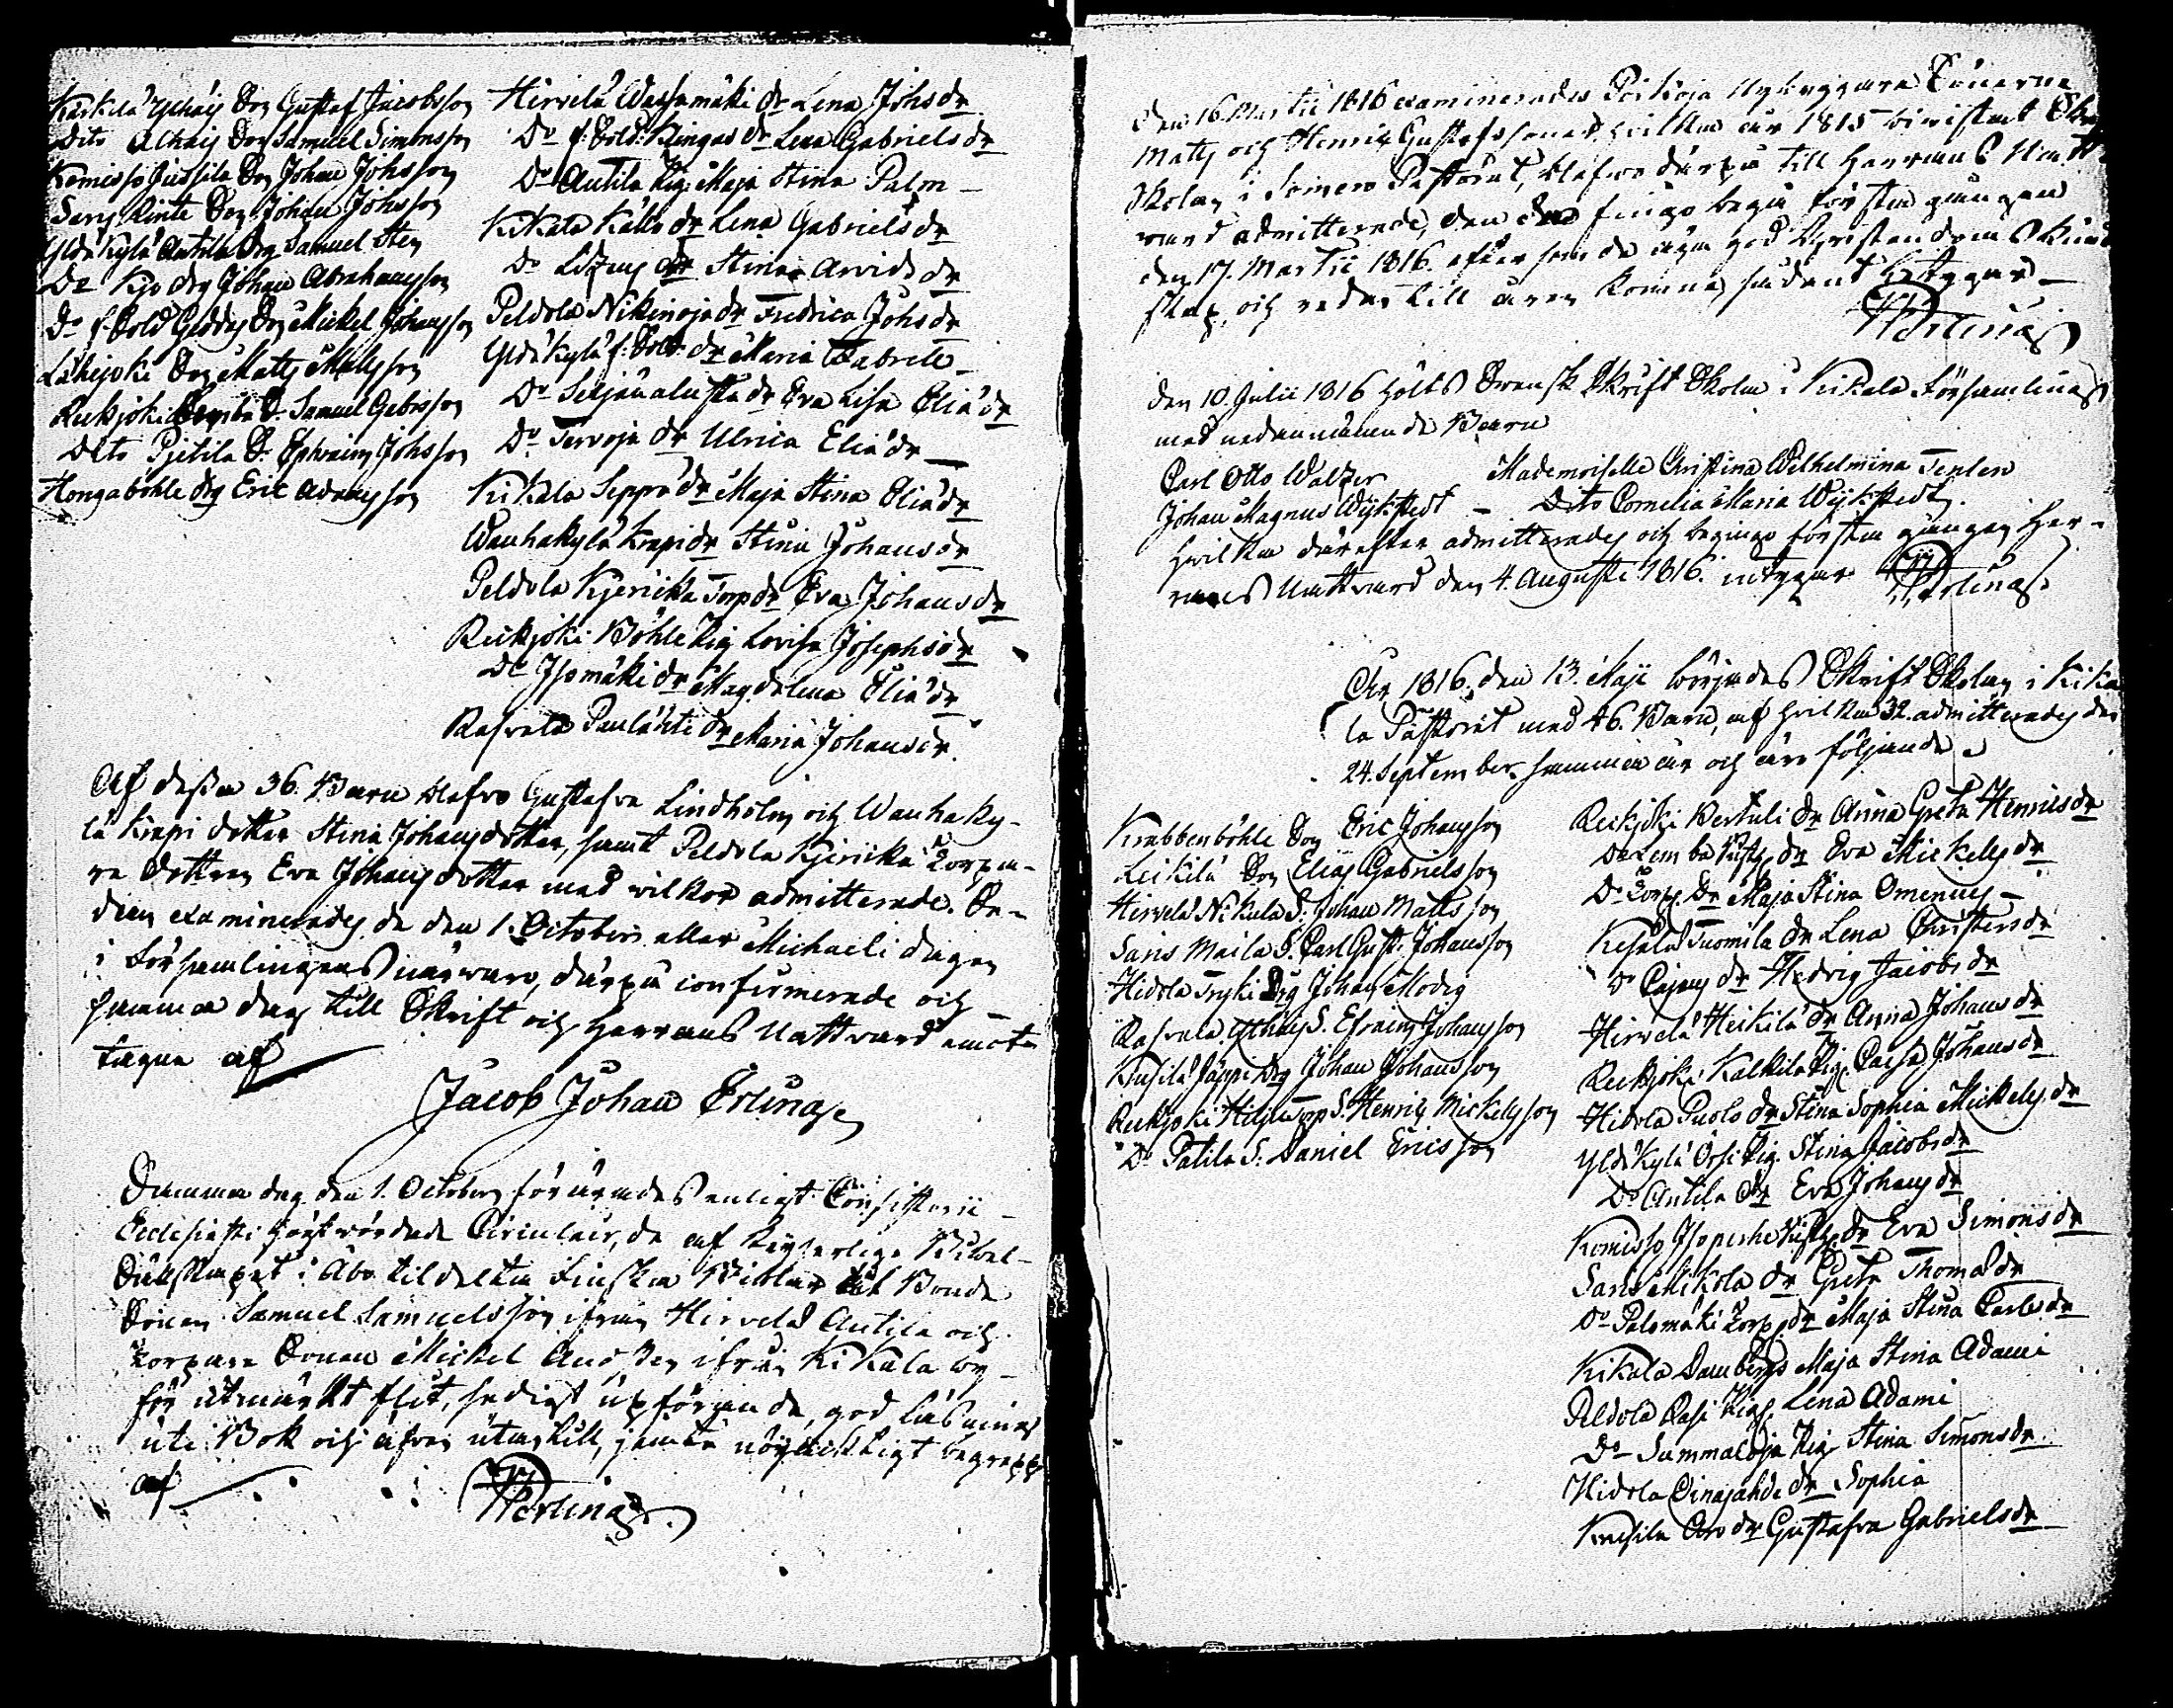 Kärkelä Ythäis Son Gustaf Jacobsson
Dito Alhais Son Samuel Simonsson
Komisso Jussila Son Johan Johsson
Saris Rinte Son Johan Johsson
Yldskylä Antila Drg Samuel Sten
Do Kjo drg Johan Abrahamsson
Do f. Sold Geddas Son Mickel Johansson
Lähejoki Son Matts Mattsson
Rekijoki Lemba S. Samuel Gabrsson
Dito Pjetilä S. Ephraim Johsson
Hongaböhle drg Eric Adamsson
Hirvelä Wassamäki dr Lena Johsdr
Do f. Sold. Klingas dr Lena Gabrielsdr
Do Antila Pig. Maja Stina Palm
Kikala Källo dr Lena Gabrielsdr
Do dr Stina Arvidsdr
Peldola Nikinoja dr Fredrica Johsdr
Yldskylä f. Sold. dr Maria
Do Seljänalusta dr Eva Lisa Eliædr
Do Tervoja dr Ulrica Eliædr
Kikala Seppä dr Maja Stina Eliædr
Wanhakylä Krapi dr Stina Johansdr
Peldola Kjerikka Torp dr Eva Johansdr
Rekijoki Böhle Pig Lovisa Josephsdr
Do Isomäki dr Magdalena Eliædr
Rasvala Paulähti dr Maria Johansdr.
Af dessa 36. Barn blefvo Gustafva Lindholm och Wanhaky-
lä Krapi dotter Stina Johansdotter, samt Peldola Kjerikka Torpa-
re dottren Eva Johansdotter med vilkor admitterade. Se-
dan examinerades de den 1. October eller Michaeli dagen
i Församlingens närvaro, därpå confirmerade och
samma dag till Skrift och Herrans Nattvard emot-
tagne af
Jacob Johan Erling
Samma dag den 1. October förärades enligt Consistorii
Ecclesiastici högtvördade Circulair, de af Kejserliga Bibel-
Sällskapet i Åbo tildelta Finska Biblar åt Bonde
Sonen Samuel Samuelsson ifrån Hirvelä Antila och
Torpare Sonen Mickel Andsson ifrån Kikala by
för utmärkt flit, sedigt upförande, god läsning
uti Bok och äfven utantill, jemte nöjaktigt begrepp
af
JJErling
Den 16 Martii 1816 examinerades Nybyggare Sönerne
Matts och Henric Gustafssöner, hvilka år 1815 bivistat Skrift
Skolan i Somero Pastorat, blefvo därpå till Herrans Natt-
vard admitterade, den de fingo begå första gången
den 17. Martii 1816. efter som de äga god Christendoms Kund-
skap, och redan till åren komne, sådant betygar
JJErling
Den 10. Julii 1816 hölts Svensk Skrift Skola i Kikala Församling
med nedannämnde Barn
Carl Otto Walzer Mademoiselle Christina Wilhelmina Tenlen
Johan Magnus Wijkstedt - Dito Cornelia Maria Wijkstedt.
hvilka därefter admitterades och begingo första gången Her-
rans Nattvard den 4. Augusti 1816. intygar JJErling.
År 1816. den 13. Maji börjades Skrift Skolan i Kika-
la Pastorat med 46. Barn, af hvilka 32. admitterades den
24. September samma år och äro följande
Krabbenböhle Son Eric Johansson
Leikilä Son Elias Gabrielsson
Hirvelä Nikula S. Johan Mattsson
Saris Maila S. Carl Gust. Johansson
Hidola Tryki Drg Johan Modig
Rasvala Ythäis S. Efraim Johansson
Krusila Jäppi Drg Johan Johansson
Rekijoki Torp S. Henric Mickelsson
Do Patila S. Daniel Ericsson
Rekijoki Bertuli dr Anna Greta Henricsdr
Do Lemba dr Eva Mickelsdr
Do Torp. Dr Maja Stina Omenus
Kesälä Tuomila dr Lena Christersdr
Do Pajans dr Hedvig Jacobsdr
Hirvelä Heikilä dr Anna Johansdr
Rekijoki Kalkila Pig. Caisa Johansdr
Hidola Puolo dr Stina Sophia Mickelsdr
Yldskylä Orsi Pig. Stina Jacobsdr
Do Antila dr Eva Johansdr
Komisso Isoperhe dr Eva Simonsdr
Saris Mikola dr Greta Thomædr
Do Palomäki Torp dr Maja Stina Carlsdr
Kikala Dambergs Maja Stina Adami
Peldola Pasi Pig. Lena Adami
Do Sammaloja Pig Stina Simonsdr
Hidola dr Sophia
Krusila Aro dr Gustafva Gabrielsdr